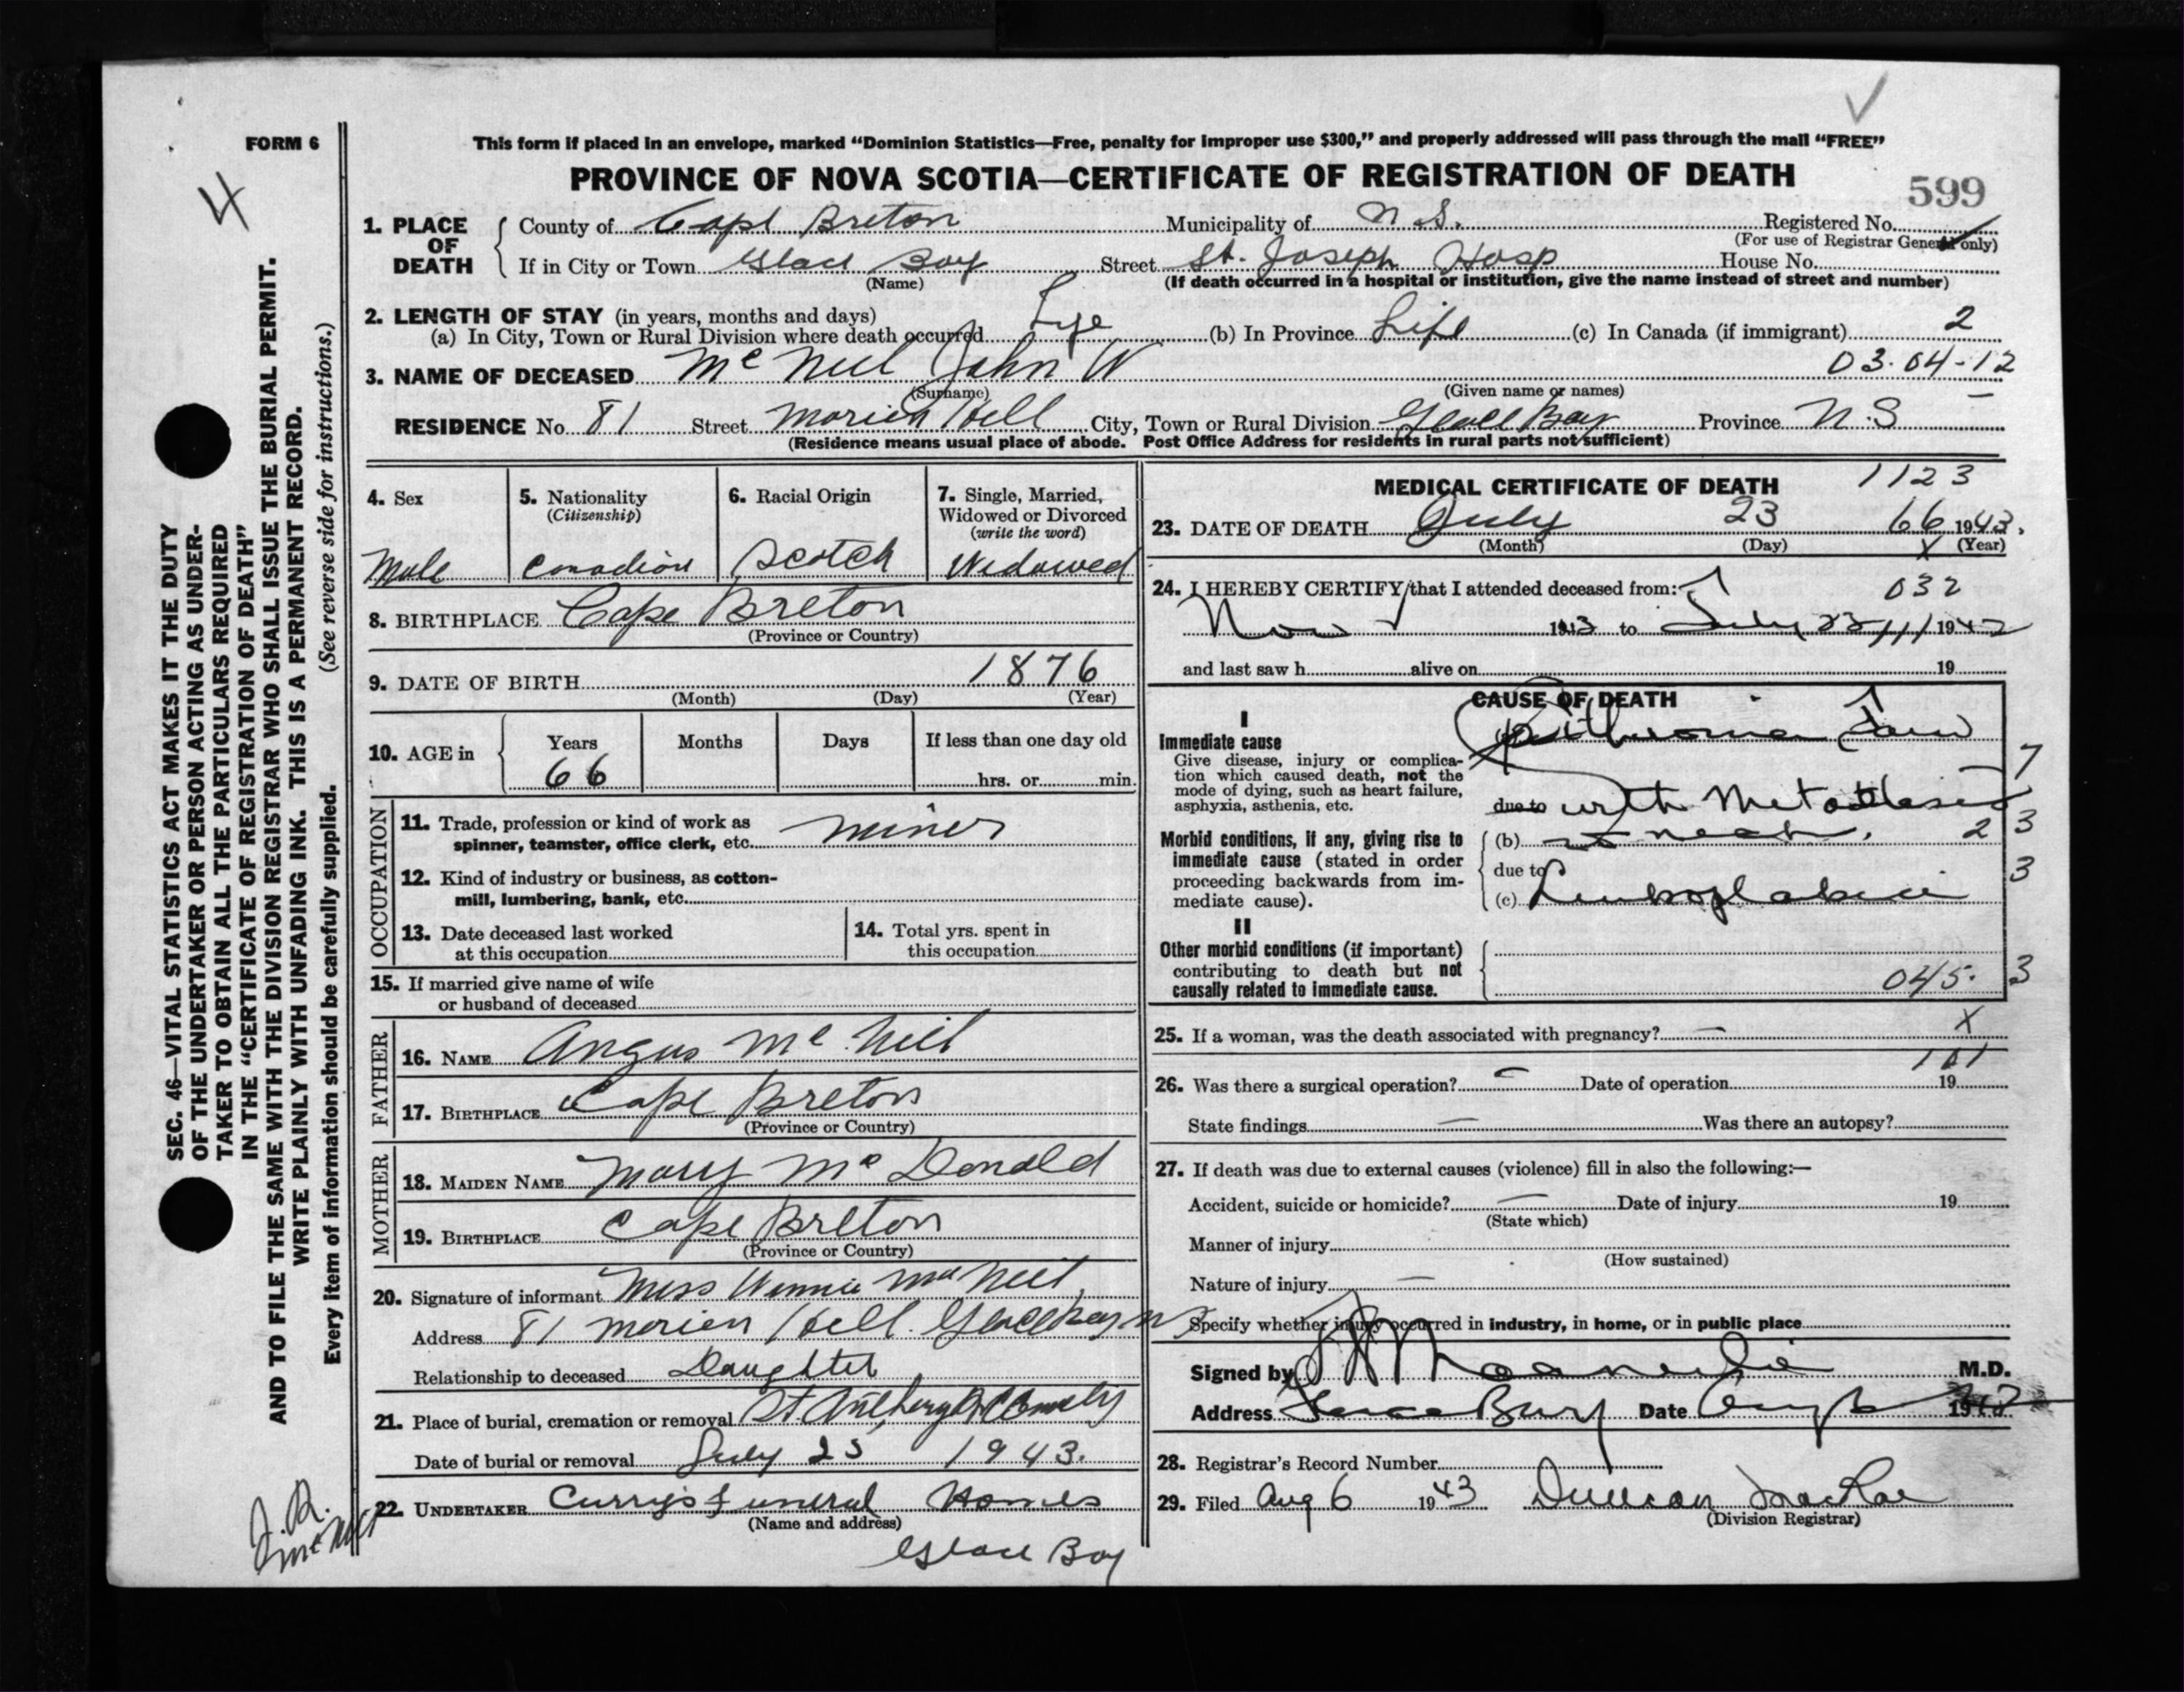 FORM 6
4
This form if placed in an envelope, marked “Dominion Statistics—Free, penalty for improper use $300,” and properly addressed will pass through the mail “FREE”
PROVINCE OF NOVA SCOTIA—CERTIFICATE OF REGISTRATION OF DEATH
599
1. PLACE OF DEATH
County of Cape Breton Municipality of N.S. Registered No.
(For use of Registrar General only)
If in City or Town Glace Bay Street St. Joseph Hosp House No.
(Name) (If death occurred in a hospital or institution, give the name instead of street and number)
2. LENGTH OF STAY (in years, months and days)
(a) In City, Town or Rural Division where death occurred Life (b) In Province Life (c) In Canada (if immigrant) 2
3. NAME OF DECEASED McNeil John W 03.04-12
(Surname) (Given name or names)
RESIDENCE No. 81 Street Morien Hill City, Town or Rural Division Glace Bay Province N.S
(Residence means usual place of abode. Post Office Address for residents in rural parts not sufficient)
4. Sex
Male
5. Nationality
(Citizenship)
Canadian
6. Racial Origin
Scotch
7. Single, Married, Widowed or Divorced
(write the word)
Widowed
8. BIRTHPLACE Cape Breton
(Province or Country)
9. DATE OF BIRTH 1876
(Month) (Day) (Year)
10. AGE in
Years Months Days If less than one day old
66 hrs. or min.
OCCUPATION
11. Trade, profession or kind of work as
spinner, teamster, office clerk, etc. miner
12. Kind of industry or business, as cotton-
mill, lumbering, bank, etc.
13. Date deceased last worked
at this occupation
14. Total yrs. spent in
this occupation
15. If married give name of wife
or husband of deceased
FATHER
16. NAME Angus McNeil
17. BIRTHPLACE Cape Breton
(Province or Country)
MOTHER
18. MAIDEN NAME Mary McDonald
19. BIRTHPLACE Cape Breton
(Province or Country)
20. Signature of informant Miss Winnie MacNeil
Address 81 Morien Hill. Glace Bay NS
Relationship to deceased Daughter
21. Place of burial, cremation or removal St. Anthony
Date of burial or removal July 25 1943.
22. UNDERTAKER Curry's Funeral Homes
(Name and address)
Glace Bay
MEDICAL CERTIFICATE OF DEATH 1123
23. DATE OF DEATH July 23 66 1943.
(Month) (Day) X (Year)
24. I HEREBY CERTIFY that I attended deceased from: 032
Nov 19 to July 23 19
and last saw h alive on 19
CAUSE OF DEATH
I
Immediate cause
Give disease, injury or complica-
tion which caused death, not the
mode of dying, such as heart failure,
asphyxia, asthenia, etc.
Epithelioma Jaw
due to with Metastases
Morbid conditions, if any, giving rise to
immediate cause (stated in order
proceeding backwards from im-
mediate cause).
(b) neck. 2
due to
(c) Leukoplakia
7
3
3
II
Other morbid conditions (if important)
contributing to death but not
causally related to immediate cause.
045. 3
25. If a woman, was the death associated with pregnancy? — X
26. Was there a surgical operation? — Date of operation 19
State findings — Was there an autopsy?
27. If death was due to external causes (violence) fill in also the following:—
Accident, suicide or homicide? — Date of injury 19
(State which)
Manner of injury
(How sustained)
Nature of injury —
Specify whether injury occurred in industry, in home, or in public place
Signed by M.D.
Address Glace Bay Date Aug 19
28. Registrar's Record Number
29. Filed Aug 6 1943 Duncan MacRae
(Division Registrar)
SEC. 46—VITAL STATISTICS ACT MAKES IT THE DUTY
OF THE UNDERTAKER OR PERSON ACTING AS UNDER-
TAKER TO OBTAIN ALL THE PARTICULARS REQUIRED
IN THE “CERTIFICATE OF REGISTRATION OF DEATH”
AND TO FILE THE SAME WITH THE DIVISION REGISTRAR WHO SHALL ISSUE THE BURIAL PERMIT.
WRITE PLAINLY WITH UNFADING INK. THIS IS A PERMANENT RECORD.
Every item of information should be carefully supplied. (See reverse side for instructions.)